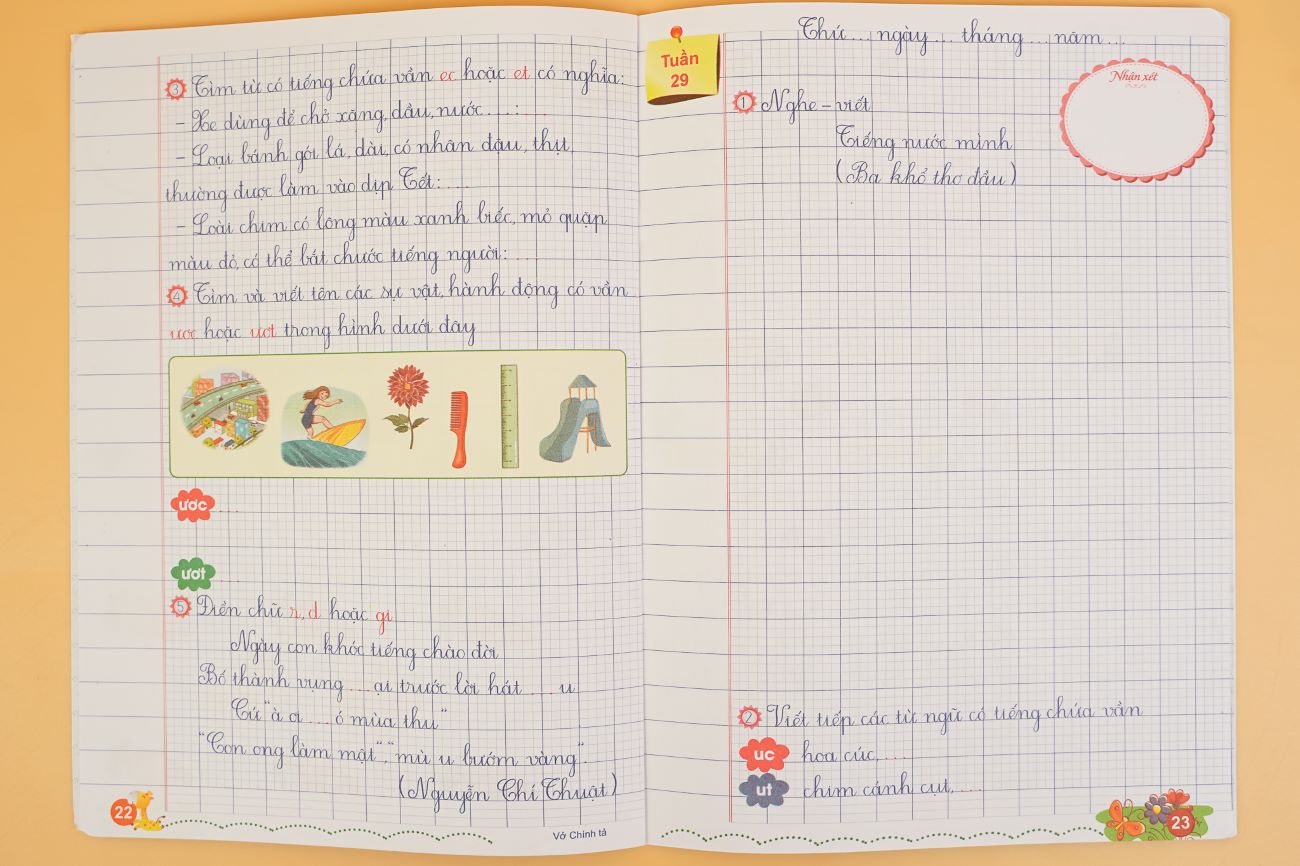 3 Tìm từ có tiếng chứa vần ec hoặc et có nghĩa:
– Xe dùng để chở xăng, dầu, nước ....: ....
– Loại bánh gói lá, dài, có nhân đậu, thịt,
thường được làm vào dịp Tết: ....
– Loài chim có lông màu xanh biếc, mỏ quặp
màu đỏ, có thể bắt chước tiếng người: ....
4 Tìm và viết tên các sự vật, hành động có vần
ươc hoặc ươt trong hình dưới đây
ước ....
ượt ....
5 Điền chữ r, d hoặc gi
Ngày con khóc tiếng chào đời
Bố thành vụng ....ại trước lời hát ....u
Cứ "à ơi ....ó mùa thu"
"Con ong làm mật", "mù u bướm vàng".
(Nguyễn Chí Thuật)
22
Vở Chính tả
Tuần
29
Thứ ... ngày ... tháng ... năm ...
Nhận xét
1 Nghe – viết
Tiếng nước mình
(Ba khổ thơ đầu)
2 Viết tiếp các từ ngữ có tiếng chứa vần
uc hoa cúc, ....
ut chim cánh cụt, ....
23